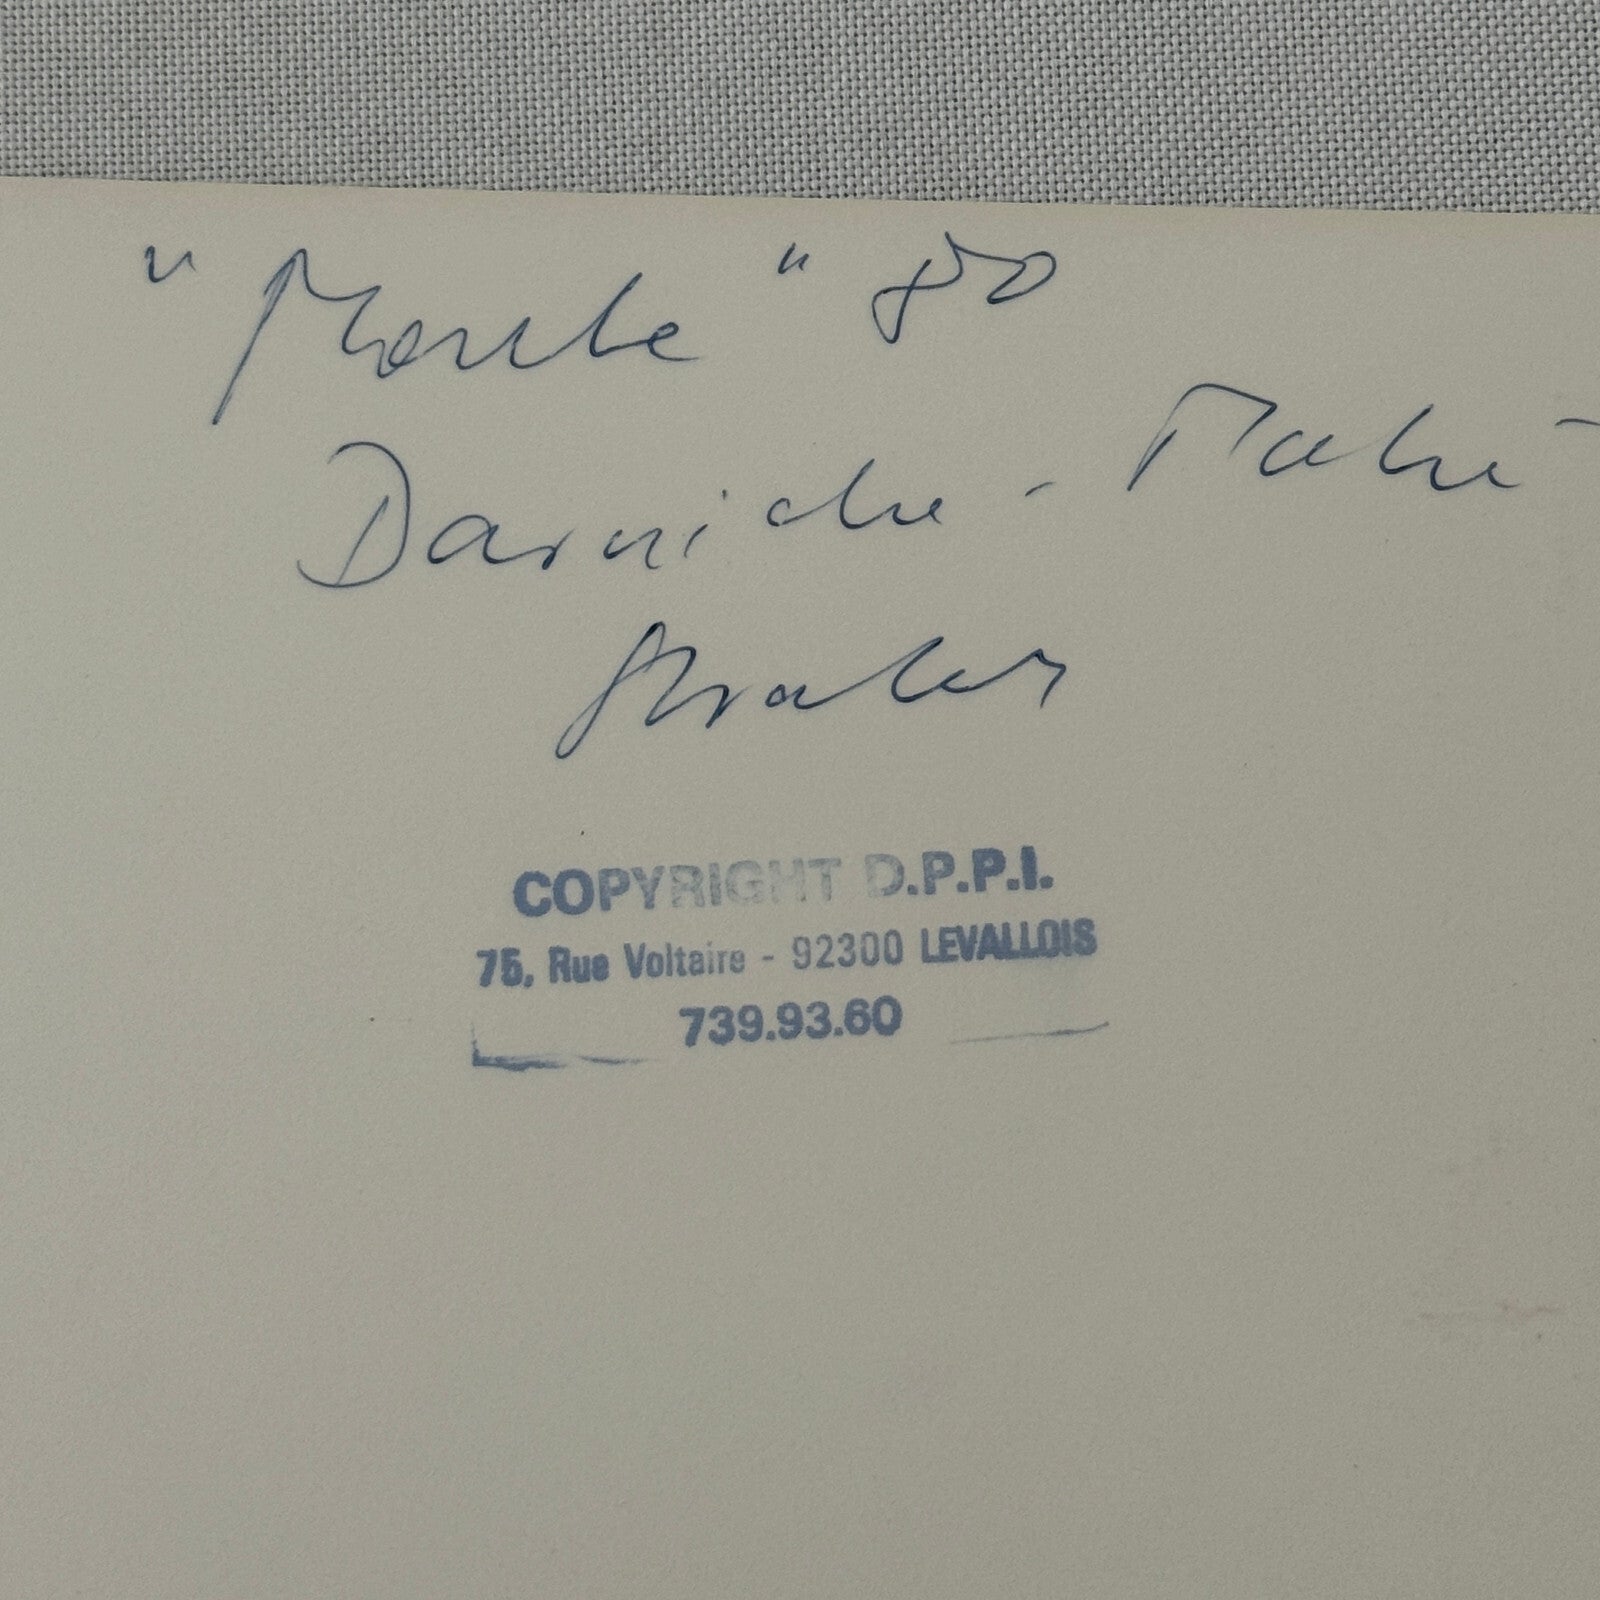 "Monte" 80
Darniche - Mahé
Stratos
COPYRIGHT D.P.P.I.
75, Rue Voltaire - 92300 LEVALLOIS
739.93.60